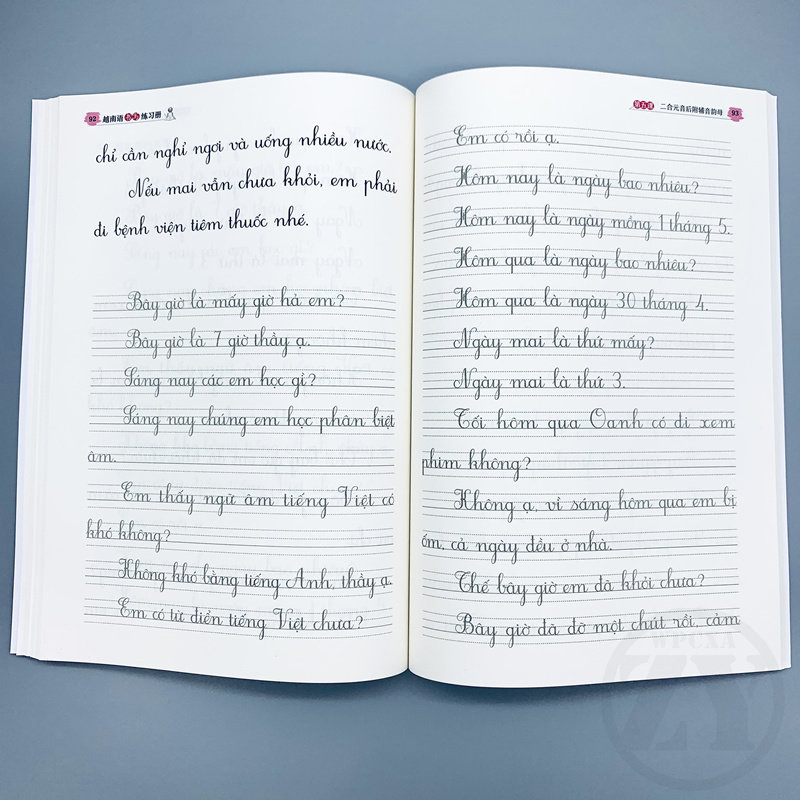 92 越南语书写练习册
chỉ cần nghỉ ngơi và uống nhiều nước.
Nếu mai vẫn chưa khỏi, em phải
đi bệnh viện tiêm thuốc nhé.
Bây giờ là mấy giờ hả em?
Bây giờ là 7 giờ thầy ạ.
Sáng nay các em học gì?
Sáng nay chúng em học phân biệt
âm.
Em thấy ngữ âm tiếng Việt có
khó không?
Không khó bằng tiếng Anh, thầy ạ.
Em có từ điển tiếng Việt chưa?
第五课 二合元音后附辅音韵母 93
Em có rồi ạ.
Hôm nay là ngày bao nhiêu?
Hôm nay là ngày mồng 1 tháng 5.
Hôm qua là ngày bao nhiêu?
Hôm qua là ngày 30 tháng 4.
Ngày mai là thứ mấy?
Ngày mai là thứ 3.
Tối hôm qua Oanh có đi xem
phim không?
Không ạ, vì sáng hôm qua em bị
ốm, cả ngày đều ở nhà.
Thế bây giờ em đã khỏi chưa?
Bây giờ đã đỡ một chút rồi, cảm
WPCXA
ZY